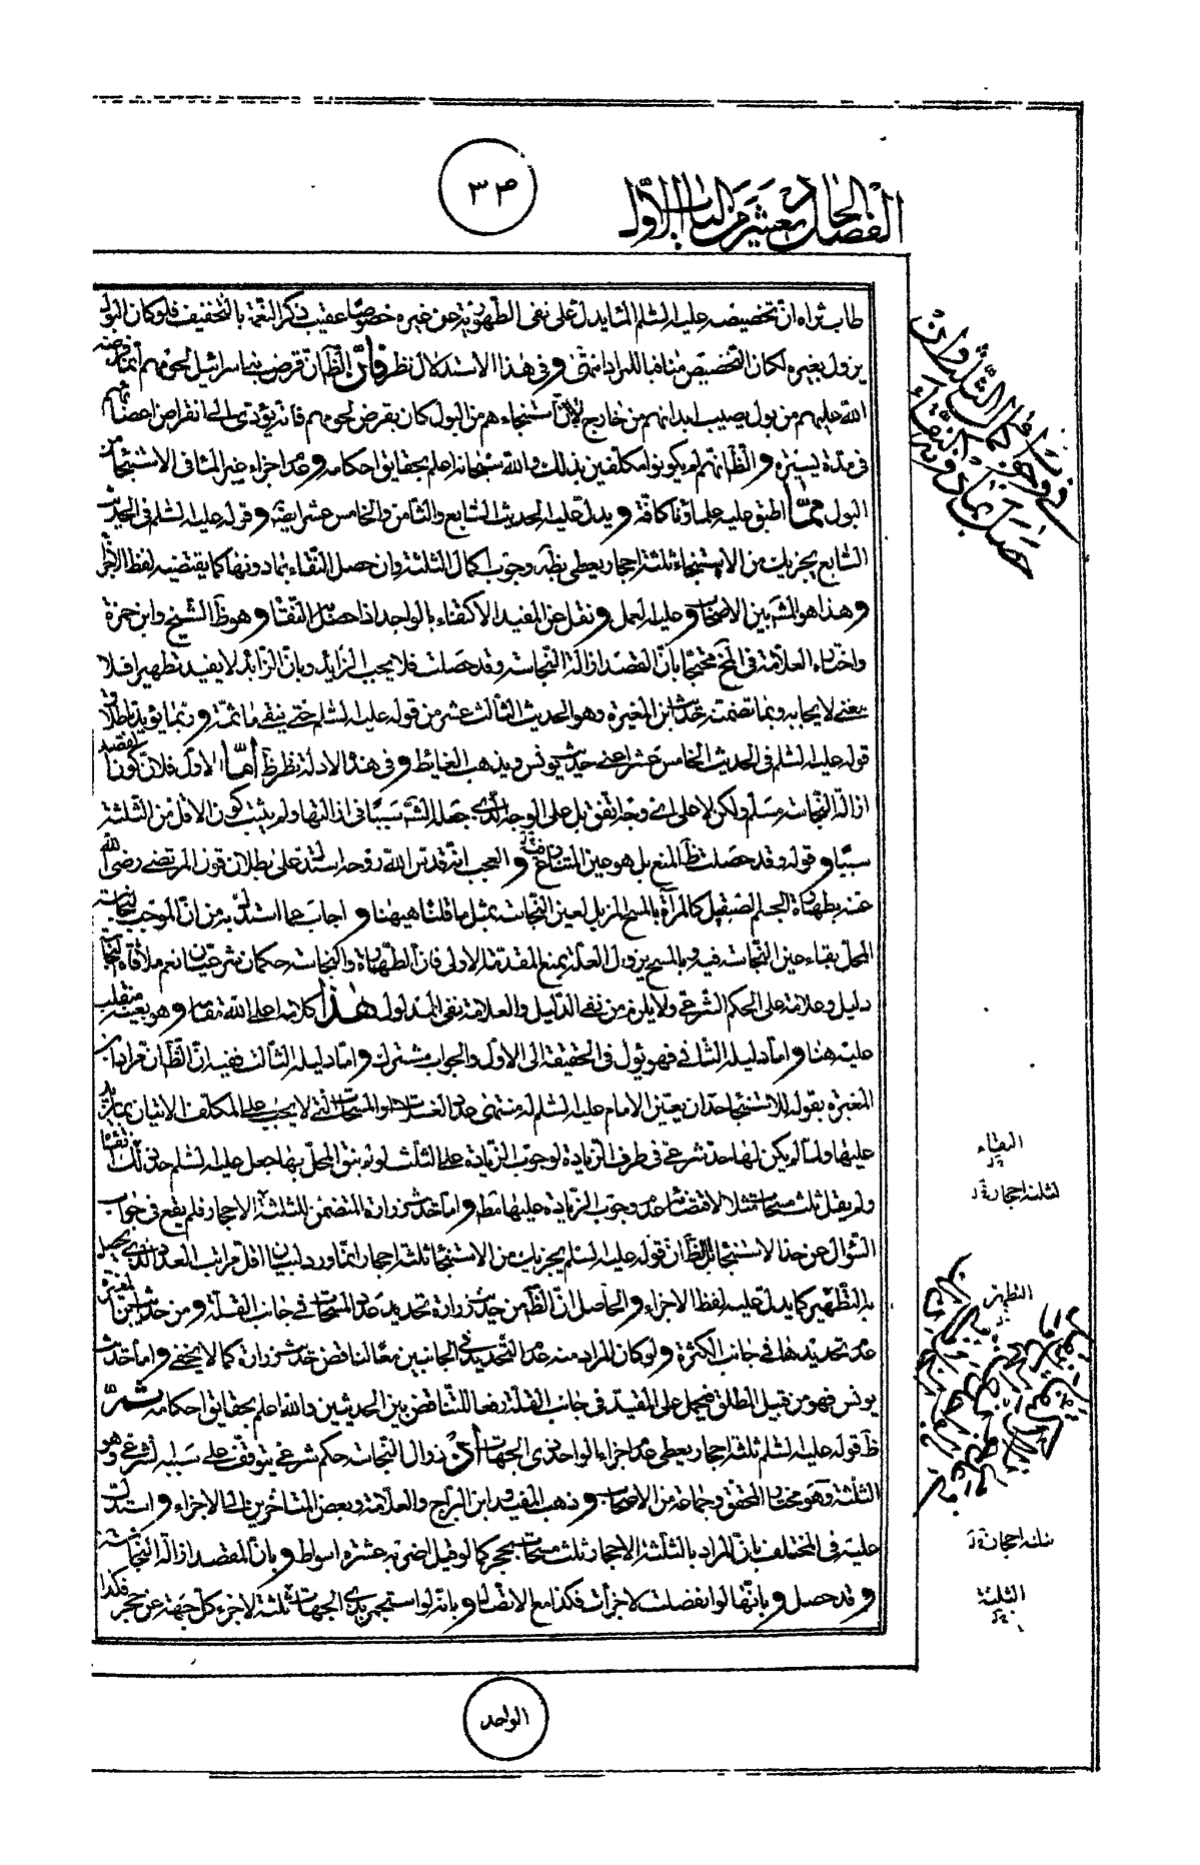 الفصل الحادي عشر من الباب الأوّل
٣٣
طاب ثراه انّ تخصيصه عليه السلم الماء يدل على نفى الطهوريّة عن غيره خصوصًا عقيب ذكر النعمة بالتخفيف فلو كان البول
يزول بغيره لكان التخصيص منافيا للمراد انتهى وفى هذا الاستدلال نظر فانّ الظّ انّ قرض بنى اسرائيل لحومهم انما
الله عليهم من بول يصيب ابدانهم من خارج لا انّ استنجاءهم من البول كان بقرض لحومهم فانه يؤدى الى انقراض اعضائهم
فى مدّة يسيرة والظّ انهم لم يكونوا مكلفين بذلك والله سبحانه اعلم بحقايق احكامه وعدم اجزاء غير الماء فى الاستنجاء من
البول ممّا اطبق عليه علماؤنا كافة ويدل عليه الحديث السّابع والثامن والخامس عشر ايضا وقوله عليه السلم فى الحديث
السّابع يجزيك من الاستنجاء ثلثة احجار يعطى بظ وجوب اكمال الثلثة وان حصل النّقاء بما دونها كما يقتضيه لفظ الاجزاء
وهذا هو المشهر بين الاصحاب وعليه العمل ونقل عن المفيد الاكتفاء بالواحد اذا حصل به النّقاء وهو ظ الشيخ وابن حمزة
واختاره العلامة فى المخ محتجّا بانّ القصد ازالة النجاسة وقد حصلت فلا يجب الزائد وبانّ الزائد لا يفيد تطهيرا فلا
معنى لايجابه وبما تضمنه حديث ابن المغيرة وهو الحديث الثالث عشر من قوله عليه السلم حتى ينقى ما ثمّة وربما يؤيد باطلاق
قوله عليه السلم فى الحديث الخامس عشر اعنى حديث يونس ويذهب الغائط وفى هذه الادلة نظر ظ أمّا الاول فلان كون القصد
ازالة النجاسة مسلم ولكن لا على اى وجه اتفق بل على الوجه الذى جعله الشّ سببًا فى ازالتها ولم يثبت كون الاقل من الثلثة
سببًا وقوله وقد حصلت ظ المنع بل هو عين المتنازع فيه والعجب انه قدس الله روحه استدل على بطلان قول المرتضى رضى الله
عنه بطهارة الجسم الصّيقل كالمرآة بالمسح المزيل لعين النجاسة بمثل ما قلناه هيهنا واجاب عما استدل به من انّ الموجب لنجاسة
المحل بقاء عين النجاسة فيه وبالمسح يزول العلة بمنع المقدمة الاولى فان الطهارة والنجاسة حكمان شرعيان نعم ملاقاة النجاسة
دليل وعلامة على الحكم الشرعى ولا يلزم من نفى الدّليل والعلامة نفى المدلول هذا كلامه اعلى الله مقامه وهو بعينه منقلب
عليه هنا وامّا دليله الثانى فهو يؤل فى الحقيقة الى الاول والجواب مشترك وامّا دليله الثالث ففيه انّ الظّ انّ مراد ابن
المغيرة بقوله للاستنجاء حد ان يعيّن الامام عليه السلم له منتهى عدد الغسلات او المسحات التى لا يجب على المكلف الاتيان بما يزيد
عليها ولمّا لم يكن لها حد شرعى فى طرف الزيادة لوجوب الزيادة على الثلث لو لم ينق المحلّ بها جعل عليه السلم حد ذلك النقاء
ولم يقل ثلث مسحات مثلا لاقتضائه عدم وجوب الزيادة عليها مط وامّا حديث زرارة المتضمن للثلثة الاحجار فلم يقع فى جواب
السّؤال عن حد الاستنجاء بل الظّ ان قوله عليه السلم يجزيك من الاستنجاء ثلثة احجار انما ورد لبيان اقل مراتب العدد الذى يحصل
به التّطهير كما يدل عليه لفظ الاجزاء والحاصل انّ الظّ من حديث زرارة تحديد عدد المسحات فى جانب القلّة ومن حديث ابن المغيرة
عدم تحديدها فى جانب الكثرة ولو كان المراد منه عدم التحديد فى الجانبين معا لناقض حديث زرارة كما لا يخفى وامّا حديث
يونس فهو من قبيل المطلق فيحمل على المقيّد فى جانب القلّة رفعا للتناقض بين الحديثين والله اعلم بحقايق احكامه ثمّ
ظ قوله عليه السلم ثلثة احجار يعطى عدم اجزاء الواحد ذى الجهات اذ زوال النجاسة حكم شرعى يتوقف على سببه الشرعى وهو
الثلثة وهو مختار المحقق وجماعة من الاصحاب وذهب المفيد وابن البراج والعلامة وبعض المتأخرين الى الاجزاء واستدل
عليه فى المختلف بانّ المراد بالثلثة الاحجار ثلث مسحات بحجر كما لو قيل اضربه عشرة اسواط وبانّ المقصد ازالة النجاسة
وقد حصل وبانّها لو انفصلت لاجزأت فكذا مع الاتّصال وبانه لو استجمر بذى الجهات ثلثة لاجزء كل جهة عن حجر فكذا
فى وجوب اكمال الثلثة وان
حصل بما دونها النقاء
النقاء
لثلثة احجار
التطهير
ثلثة احجار
الثلثة
الواحد